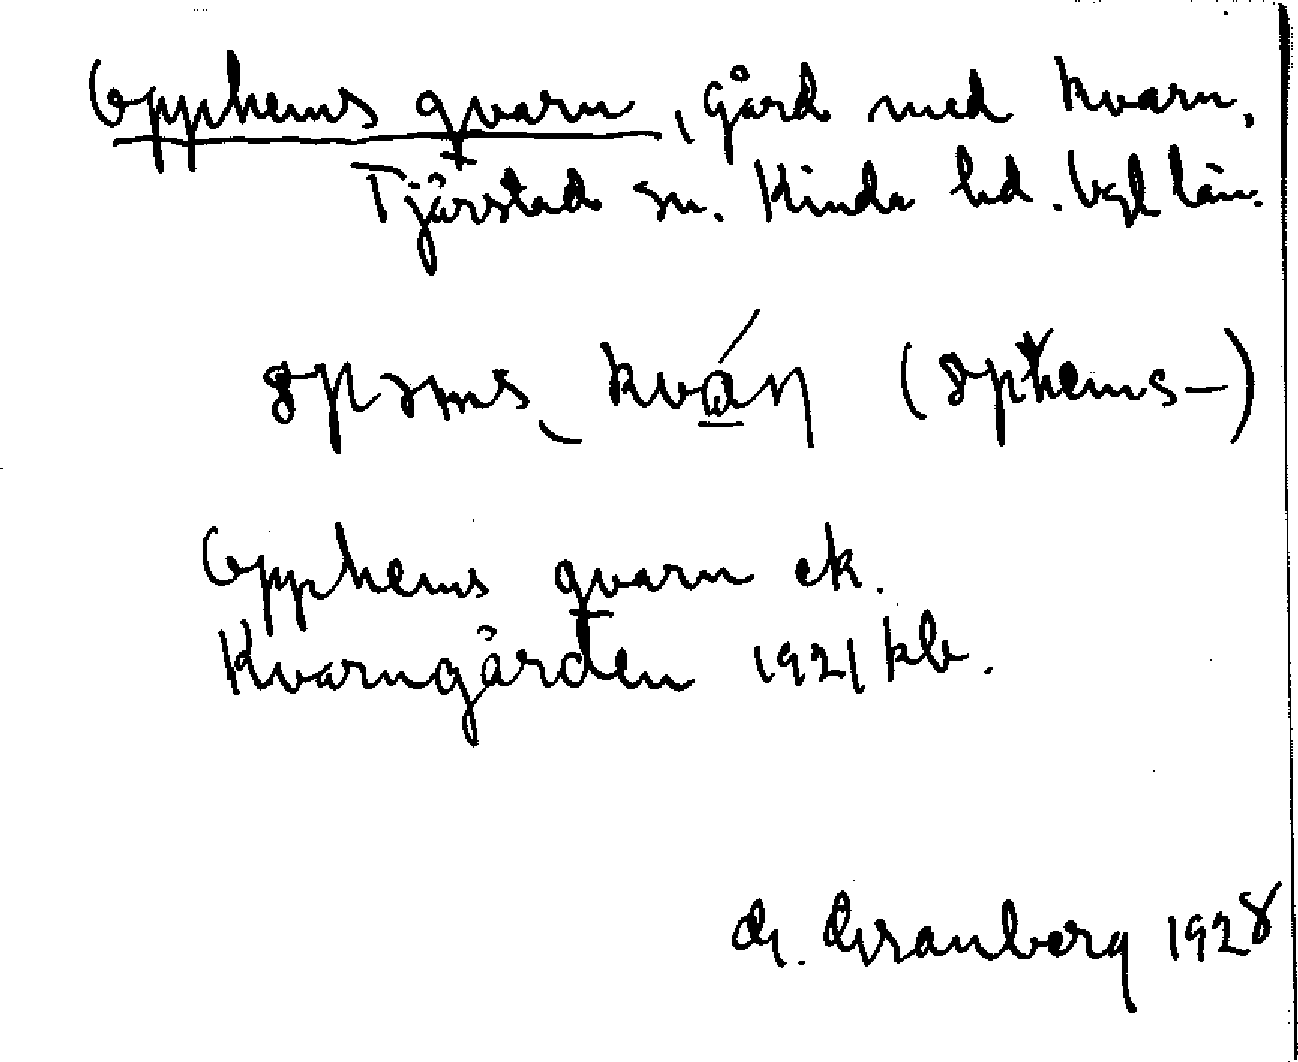 Opphems qvarn, gård med kvarn,
Tjärstad sn. Kinda hd. Ögl län.
kván
Opphems qvarn ek.
Kvarngården 1921 kb.
G. Granberg 1928